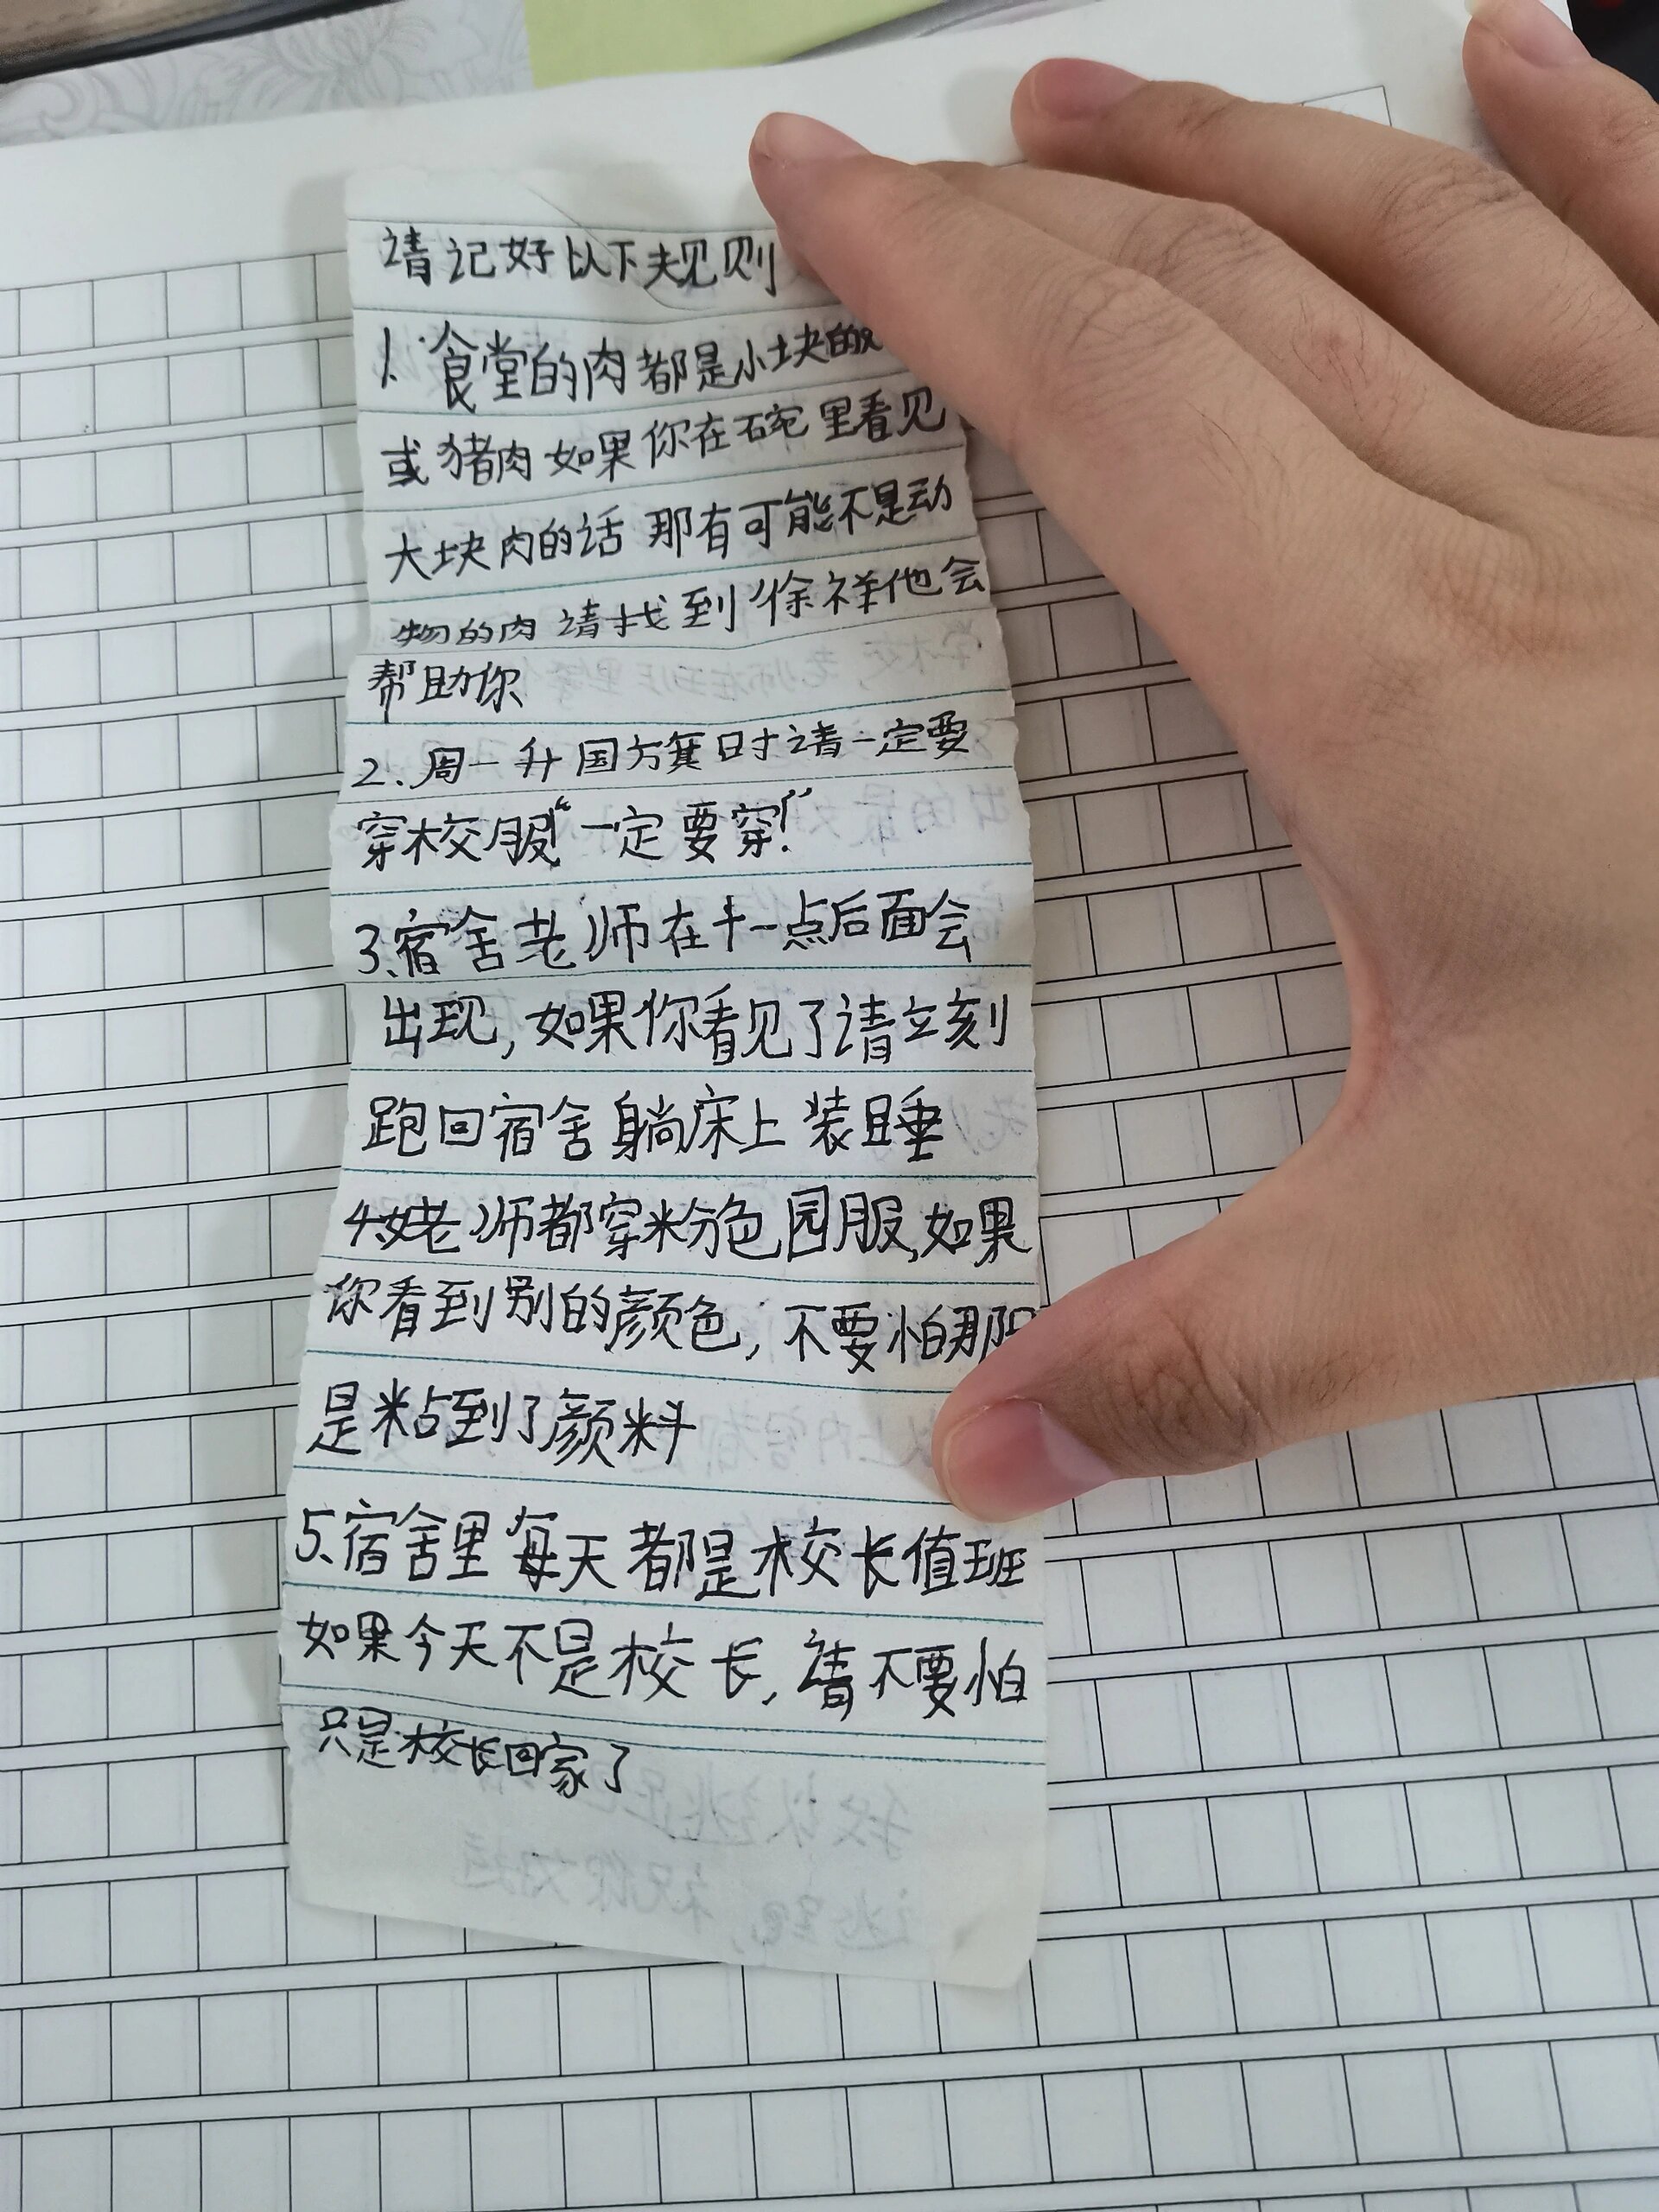 请记好以下规则
1. 食堂的肉都是小块的
或猪肉如果你在碗里看见
大块肉的话 那有可能不是动
物的肉 请找到徐祥他会
帮助你
2、周一升国旗时请一定要
穿校服“一定要穿!”
3、宿舍老师在十一点后面会
出现,如果你看见了请立刻
跑回宿舍躺床上装睡
4、老师都穿粉色园服,如果
你看到别的颜色,不要怕那
是粘到了颜料
5、宿舍里每天都是校长值班
如果今天不是校长,请不要怕
只是校长回家了